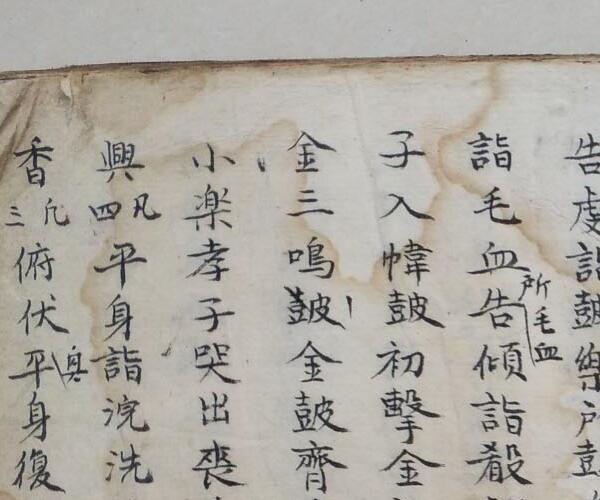 告虔詣鼓樂所
詣毛血告傾詣殺
所毛血
子入幃鼓初擊金
金三鳴鼓金鼓齊
小楽孝子哭出喪
興凡四平身詣浣洗
香凡三俯伏平身復
興